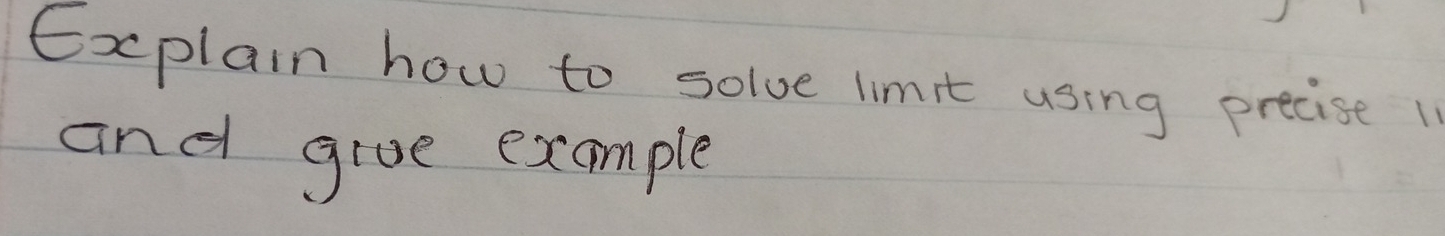 Explain how to solve limit using precise
and give example